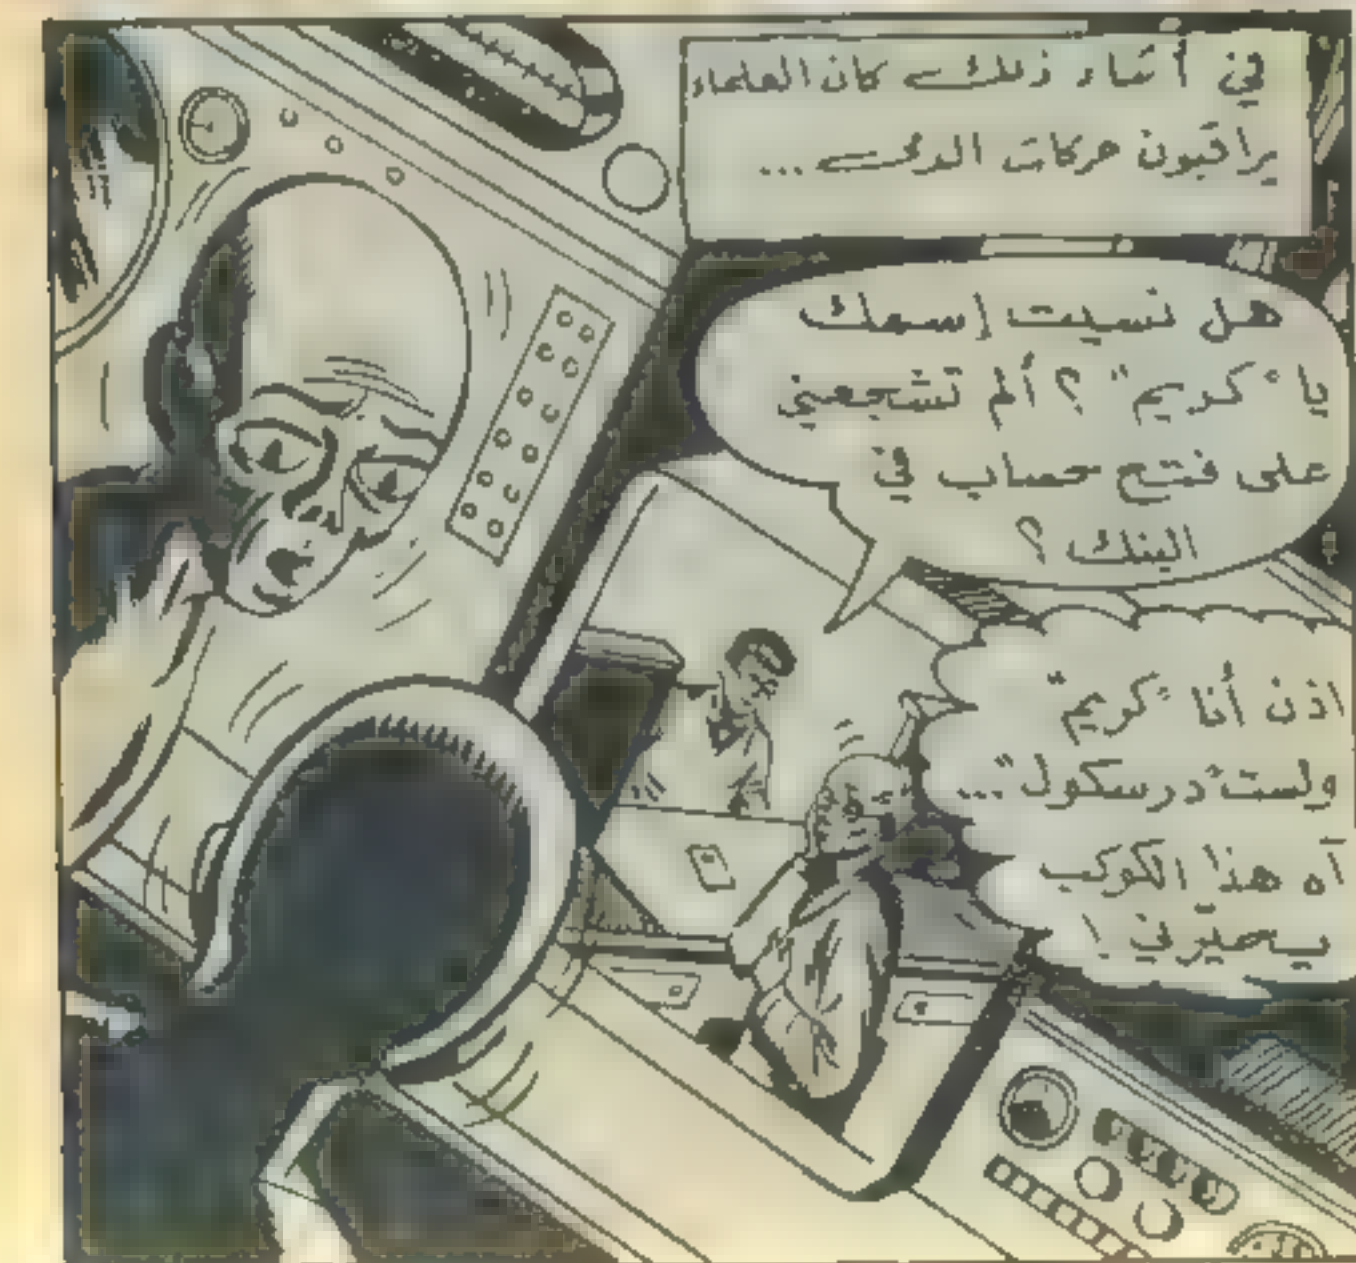 في أثناء ذلك كان العلماء
يراقبون حركات الدكـ...
هل نسيت إسمك
يا "كريم" ؟ ألم تشجعني
على فتح حساب في
البنك ؟
اذن أنا "كريم"
ولست "درسكول"...
آه هذا الكوكب
يحيرني !